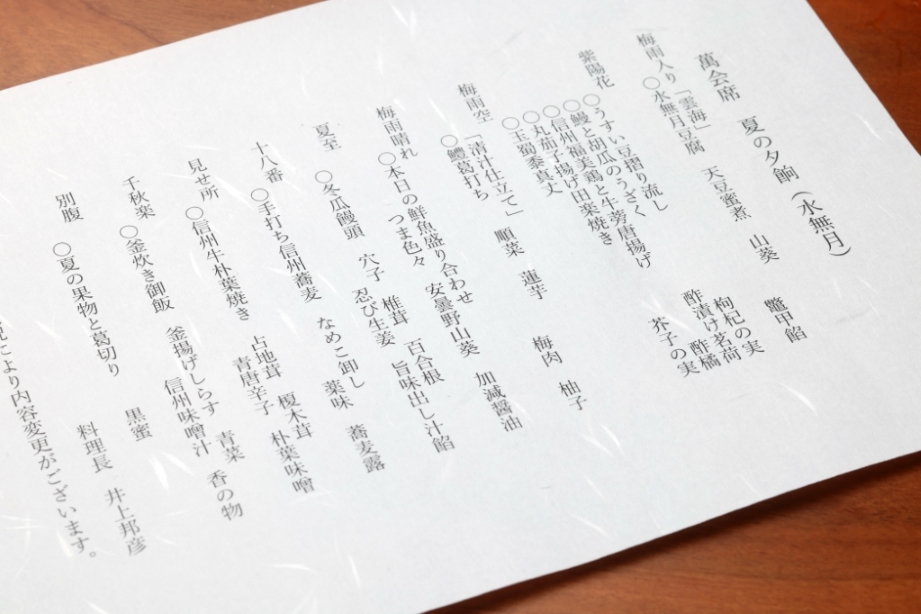 萬会席　夏の夕餉（水無月）
梅雨入り「雲海」
○水無月豆腐　天豆蜜煮　山葵　鼈甲餡
紫陽花　○うすい豆摺り流し　枸杞の実
○鰻と胡瓜のうざく　酢漬け茗荷
○信州福美鶏と牛蒡唐揚げ　酢橘
○丸茄子揚げ田楽焼き　芥子の実
○玉蜀黍真丈
梅雨空　「清汁仕立て」
○鱧葛打ち　順菜　蓮芋　梅肉　柚子
梅雨晴れ　○本日の鮮魚盛り合わせ
つま色々　安曇野山葵　加減醤油
夏至　○冬瓜饅頭　穴子　椎茸　百合根
忍び生姜　旨味出し汁餡
十八番　○手打ち信州蕎麦　なめこ卸し　薬味　蕎麦露
見せ所　○信州牛朴葉焼き　占地茸　榎木茸
青唐辛子　朴葉味噌
千秋楽　○釜炊き御飯　釜揚げしらす　青菜　香の物
信州味噌汁
別腹　○夏の果物と葛切り　黒蜜
料理長　井上邦彦
により内容変更がございます。